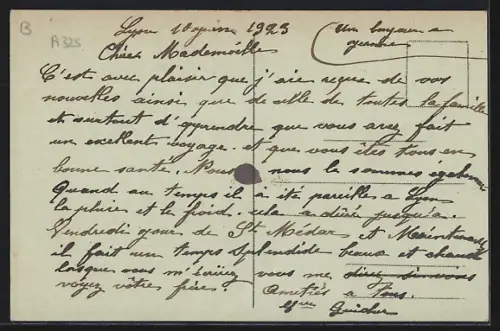 B
A325
Lyon 18 juin 1923
un bonjour a
Chère Mademoiselle
C'est avec plaisir que j'aie reçue de vos
nouvelles ainsi que de celle de toutes la famille
et surtout d'apprendre que vous avez fait
un excellent voyage. et que vous êtes tous en
bonne santé. Nous nous le sommes également
Quand au temps il a été pareille a Lyon
la pluie et le froid. cela a durée jusqu'a.
Vendredi jour de St Médar et Maintenant
il fait un temps splendide beaux et chaud
lorsque vous m'écrirez vous me direz si vous
voyez vôtre frère. Amitiés a tous.